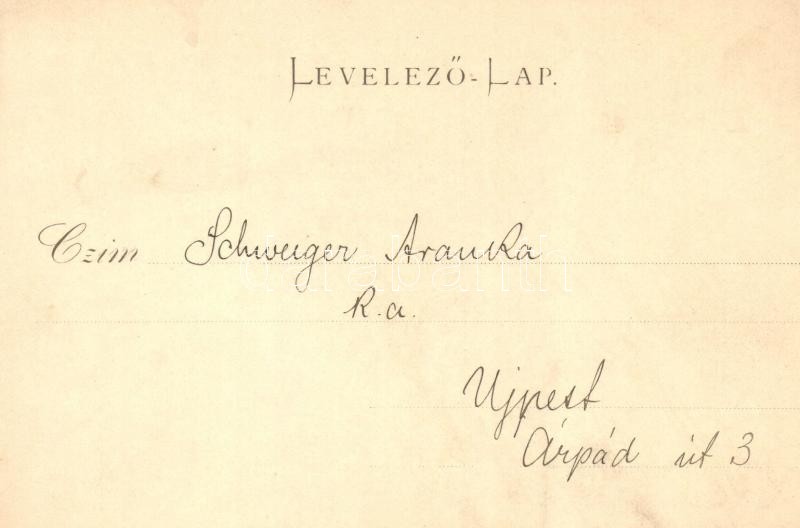 LEVELEZŐ-LAP.
Czim Schweiger Aranka
k.a.
Ujpest
Árpád út 3
darabanth